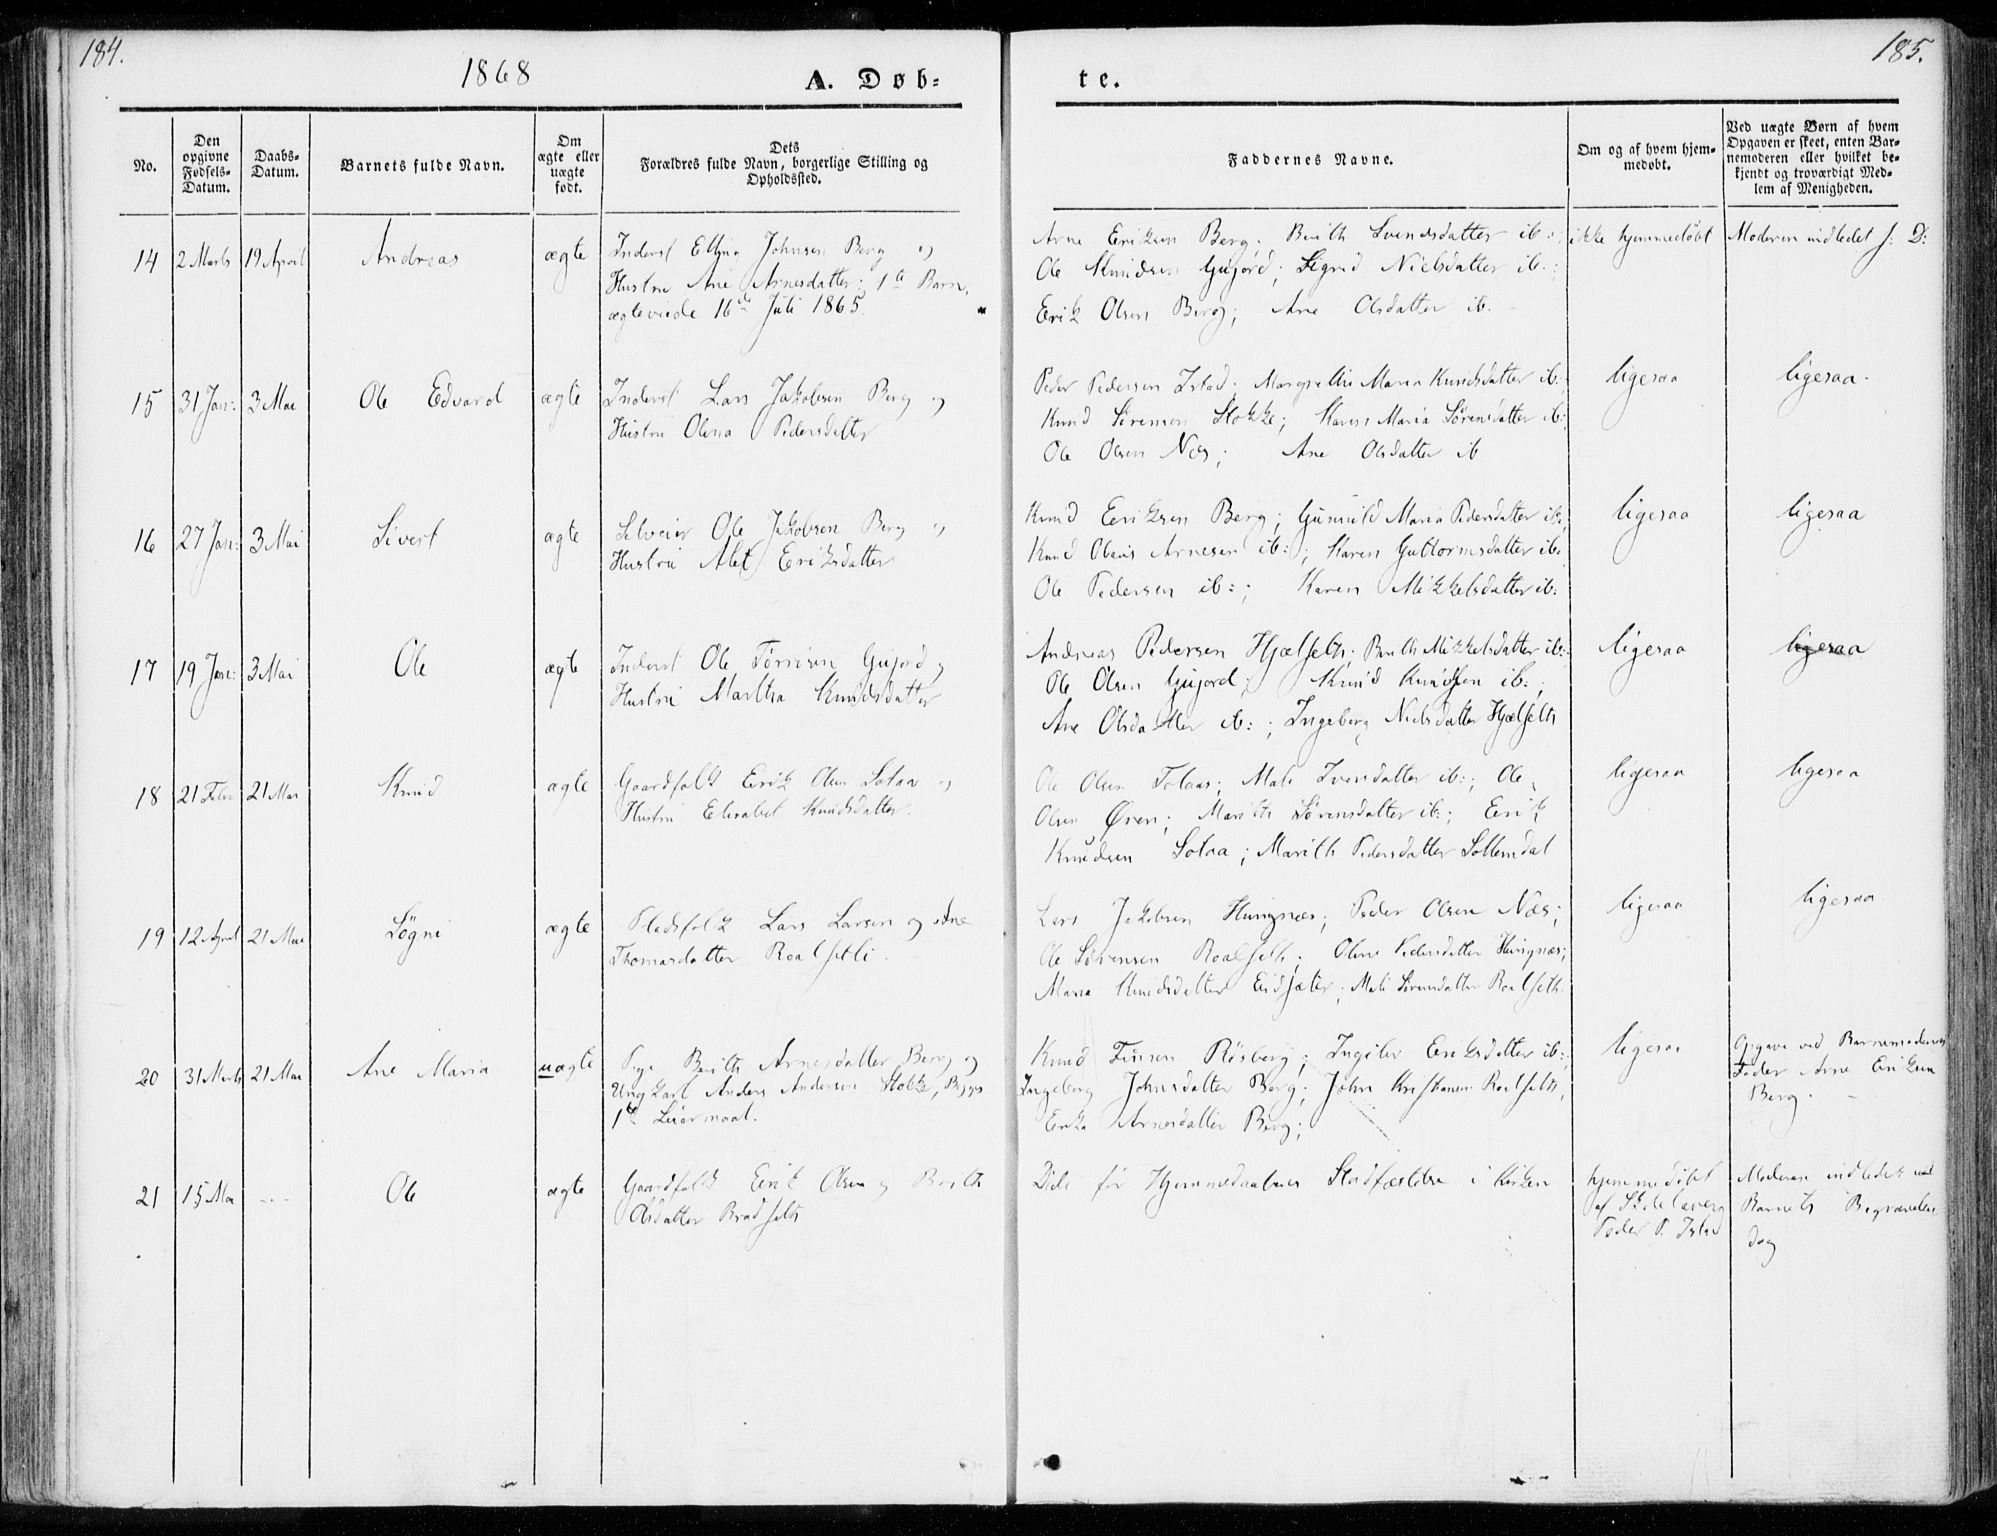 184.
1868
A. Døb-
te.
185.
No.
Den opgivne Fødsels-Datum.
Daabs-Datum.
Barnets fulde Navn.
Om ægte eller uægte født.
Dets Forældres fulde Navn, borgerlige Stilling og Opholdssted.
Faddernes Navne.
Om og af hvem hjem-medøbt.
Ved uægte Børn af hvem Opgaven er skeet, enten Bar-nemoderen eller hvilket be-kjendt og troværdigt Med-lem af Menigheden.
14 2 Marts 19 April Andreas ægte
Inderst Elling Johnsen Berg og
Hustru Ane Arnesdatter; 1te Barn,
ægteviede 16de Juli 1865.
Arne Eriksen Berg; Berith Svendsdatter ib:;
Ole Knudsen Gujord; Sigrid Nielsdatter ib:;
Erik Olsen Berg; Ane Olsdatter ib.
ikke hjemmedøbt
Moderen indledet s: D:
15 31 Jan: 3 Mai Ole Edvard ægte
Inderst Lars Jakobsen Berg og
Hustru Olina Pedersdatter
Peder Pedersen Istad; Margrethe Maria Knudsdatter ib:
Knud Sørensen Stokke; Karen Maria Sørensdatter ib:;
Ole Olsen Næs; Ane Olsdatter ib
ligesaa
ligesaa.
16 27 Jan: 3 Mai Sivert ægte
Selveier Ole Jakobsen Berg og
Hustru Alet Eriksdatter
Knud Eriksen Berg; Gunnild Maria Pedersdatter ib:;
Knud Olaus Arnesen ib:; Karen Guttormsdatter ib:
Ole Pedersen ib:; Karen Mikkelsdatter ib:
ligesaa
ligesaa
17 19 Jan: 3 Mai Ole ægte
Inderst Ole Gujord og
Hustru Martha Knudsdatter
Andreas Pedersen Hjælseth; Berith Mikkelsdatter ib:
Ole Olsen Gujord; Knud Knudsen ib:;
Ane Olsdatter ib:; Ingeborg Nielsdatter Hjælseth
ligesaa
ligesaa
18 21 Febr 21 Mai Knud ægte
Gaardfolk Erik Olsen Solaa og
Hustru Elisabet Knudsdatter.
Ole Olsen Tolaas; Mali Iversdatter ib:; Ole
Olsen Øren; Marith Sørensdatter ib:; Erik
Knudsen Solaa; Marith Pedersdatter Sollemdal
ligesaa
ligesaa
19 12 April 21 Mai Løgni ægte
Pladsfolk Lars Larsen og Ane
Thomasdatter Roalsetli.
Lars Jakobsen Hungnæs; Peder Olsen Næs;
Ole Sørensen Roalseth; Oline Pedersdatter Hungnæs;
Maria Knudsdatter Eidsæter; Mali Sørensdatter Roalseth.
ligesaa
ligesaa
20 31 Marts 21 Mai Ane Maria uægte
Pige Berith Arnesdatter Berg og
Ungkarl Anders Andersen Stokke,
1te Leiermaal.
Knud Finsen Røsberg; Eriksdatter ib:;
Ingeborg Johnsdatter Berg; John Kristiansen Roalseth;
Erika Arnesdatter Berg;
ligesaa
Opgave ved Barnemoderens
Fader Arne Eriksen
Berg.
21 15 Mai ... Ole ægte
Gaardfolk Erik Olsen og Berith
Olsdatter Bradseth
Døde før Hjemmedaabens Stadfæstelse i Kirken
hjemmedøbt
af Skolelærer
Peder P. Istad
Moderen indledet ved
Barnets Begravelses
dag